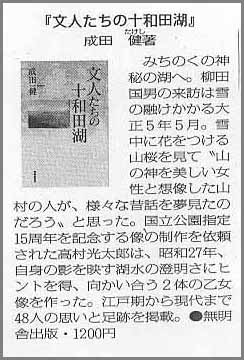 『文人たちの十和田湖』
成田 健著
たけし
成田 健
文人たちの
十和田湖
みちのくの神
秘の湖へ。柳田
国男の来訪は雪
の融けかかる大
正5年5月。雪
中に花をつける
山桜を見て〝山
の神を美しい女
性と想像した山
村の人が、様々な昔話を夢見たの
だろう〟と思った。国立公園指定
15周年を記念する像の制作を依頼
された高村光太郎は、昭和27年、
自身の影を映す湖水の澄明さにヒ
ントを得、向かい合う2体の乙女
像を作った。江戸期から現代まで
48人の思いと足跡を掲載。●無明
舎出版・1200円